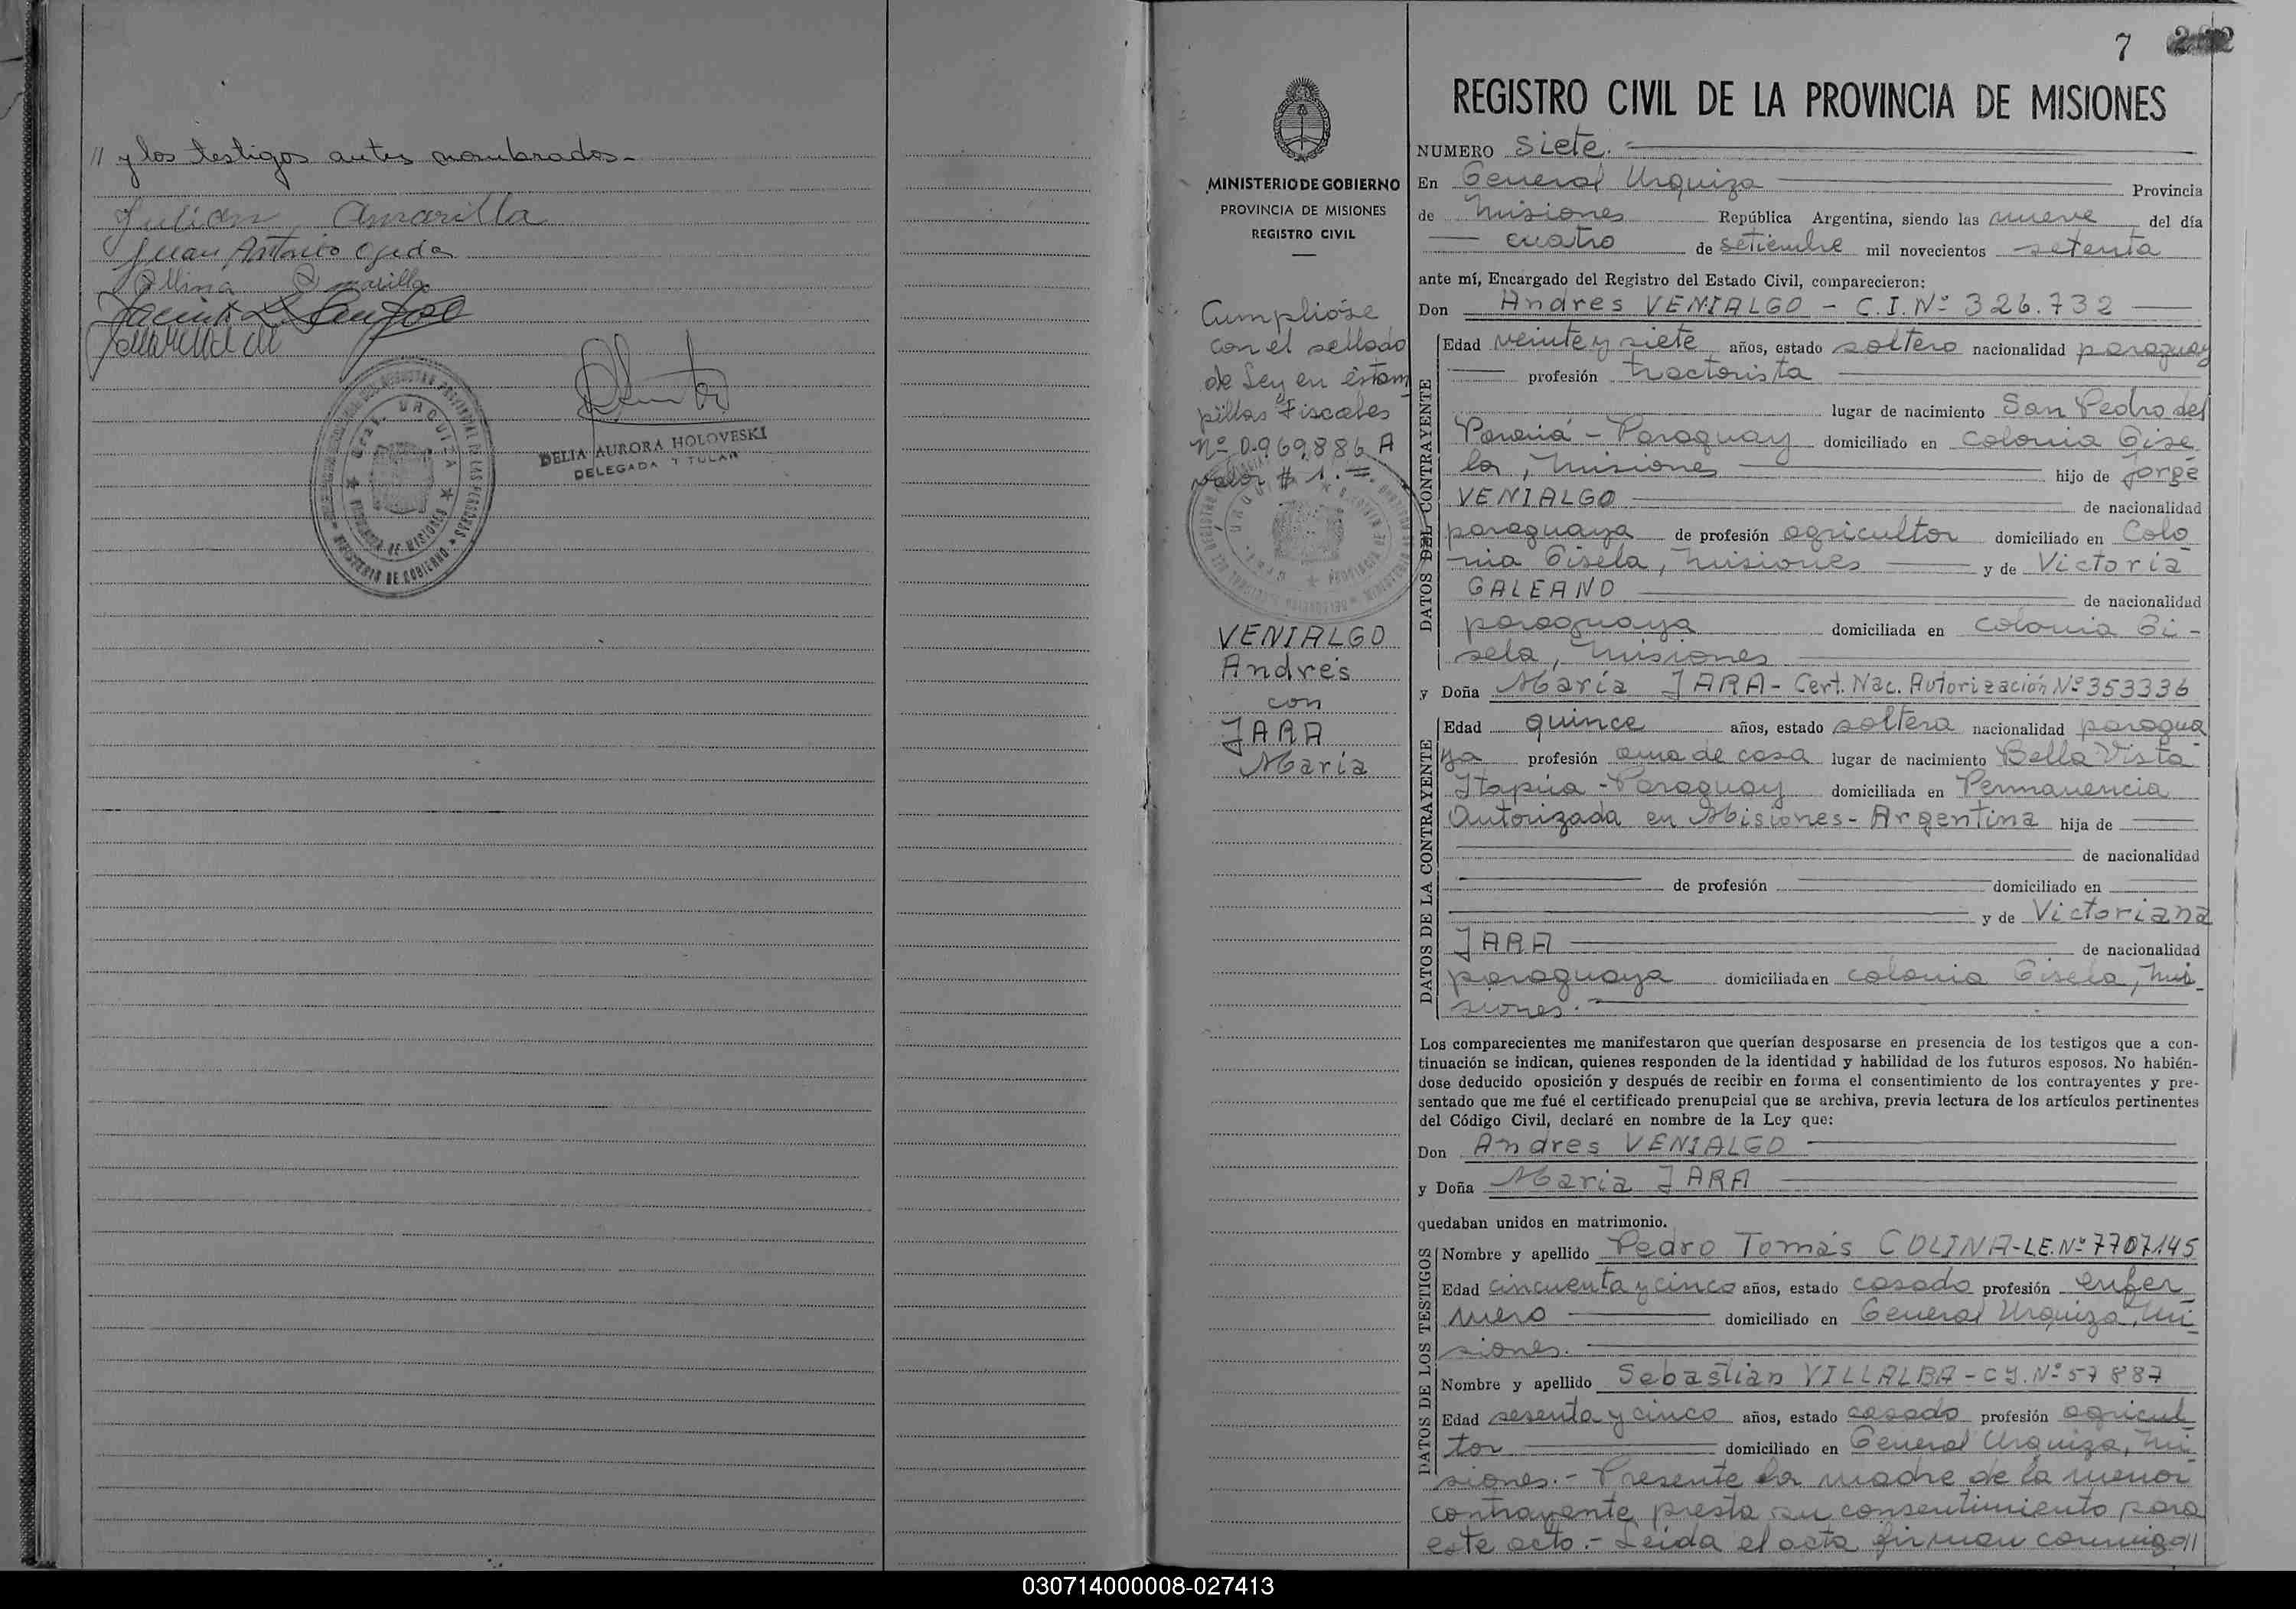 // y los testigos antes nombrados-
Julian Amarilla
Juan Antonio Ojeda
DELIA AURORA HOLOVESKI
DELEGADA TITULAR
7
MINISTERIO DE GOBIERNO
PROVINCIA DE MISIONES
REGISTRO CIVIL
Cumplióse
con el sellado
de Ley en éstam
pillas Fiscales
Nº 0.969,886 A
valor $ 1.=.
VENIALGO
Andrés
con
JARA
María
REGISTRO CIVIL DE LA PROVINCIA DE MISIONES
NUMERO Siete.
En General Urquiza Provincia
de Misiones República Argentina, siendo las nueve del día
cuatro de setiembre mil novecientos setenta
ante mí, Encargado del Registro del Estado Civil, comparecieron:
Don Andres VENIALGO - C.I. Nº 326.732
DATOS DEL CONTRAYENTE
Edad veinte y siete años, estado soltero nacionalidad paraguay
profesión tractorista
lugar de nacimiento San Pedro del
Paraná - Paraguay domiciliado en Colonia Gise
la, Misiones hijo de Jorge
VENIALGO de nacionalidad
paraguaya de profesión agricultor domiciliado en Colo
nia Gisela, Misiones y de Victoria
GALEANO de nacionalidad
paraguaya domiciliada en Colonia Gi-
sela, Misiones
y Doña María JARA - Cert. Nac. Autorización Nº 353336
DATOS DE LA CONTRAYENTE
Edad quince años, estado soltera nacionalidad paragua
ya profesión ama de casa lugar de nacimiento Bella Vista
Itapúa - Paraguay domiciliada en Permanencia
Autorizada en Misiones - Argentina hija de
de nacionalidad
de profesión domiciliado en
y de Victoriana
JARA de nacionalidad
paraguaya domiciliada en colonia Gisela, Mi
siones.-
Los comparecientes me manifestaron que querían desposarse en presencia de los testigos que a con-
tinuación se indican, quienes responden de la identidad y habilidad de los futuros esposos. No habién-
dose deducido oposición y después de recibir en forma el consentimiento de los contrayentes y pre-
sentado que me fué el certificado prenupcial que se archiva, previa lectura de los artículos pertinentes
del Código Civil, declaré en nombre de la Ley que:
Don Andres VENIALGO
y Doña Maria JARA
quedaban unidos en matrimonio.
DATOS DE LOS TESTIGOS
Nombre y apellido Pedro Tomás COLINA - L.E. Nº 7707145
Edad cincuenta y cinco años, estado casado profesión enfer
mero domiciliado en General Urquiza, Mi
siones.
Nombre y apellido Sebastián VILLALBA - C.I. Nº 57887
Edad sesenta y cinco años, estado casado profesión agricul
tor domiciliado en General Urquiza, Mi
siones.- Presente la madre de la menor
contrayente presta su consentimiento para
este acto.- Leida el acta firman conmigo //
030714000008-027413